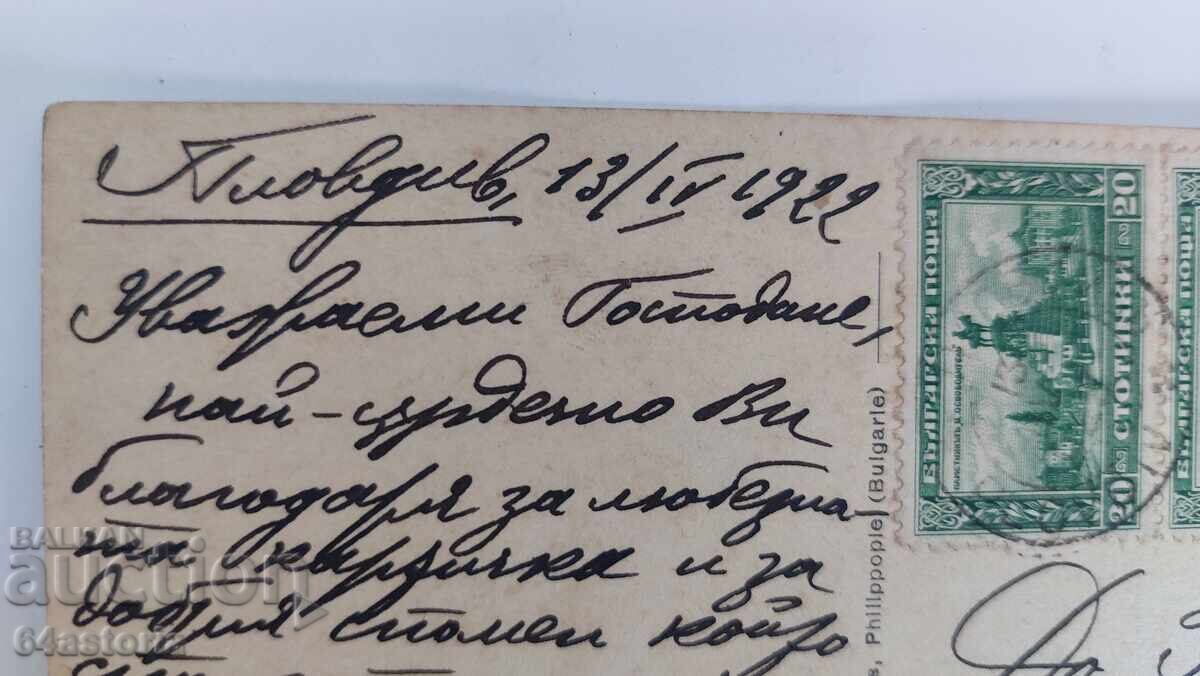 Пловдив, 13/IV 1922
Уважаеми Господине,
най-сърдечно Ви
благодаря за любезна-
та картичка и за
добрия спомен който
БЪЛГАРСКА ПОЩА
20 СТОТИНКИ 20
БЪЛГАРСКА ПОЩА
Philippople (Bulgarie)
До
BALKAN
auction
64astoria